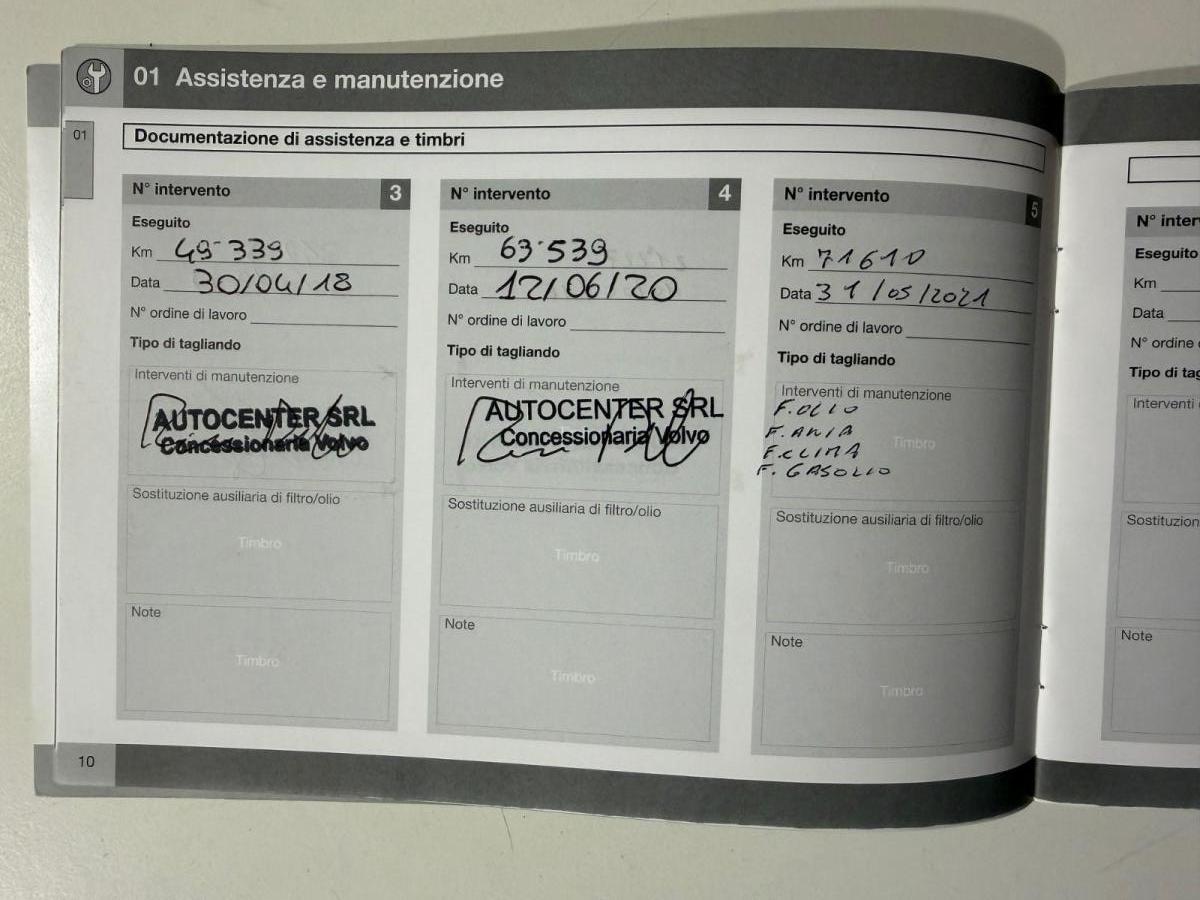 01 Assistenza e manutenzione
01
Documentazione di assistenza e timbri
N° intervento 3
Eseguito
Km 49.339
Data 30/04/18
N° ordine di lavoro
Tipo di tagliando
Interventi di manutenzione
AUTOCENTER SRL
Concessionaria Volvo
Sostituzione ausiliaria di filtro/olio
Timbro
Note
Timbro
N° intervento 4
Eseguito
Km 63.539
Data 12/06/20
N° ordine di lavoro
Tipo di tagliando
Interventi di manutenzione
AUTOCENTER SRL
Concessionaria Volvo
Sostituzione ausiliaria di filtro/olio
Timbro
Note
Timbro
N° intervento 5
Eseguito
Km 71610
Data 31/05/2021
N° ordine di lavoro
Tipo di tagliando
Interventi di manutenzione
F. OLIO
F. ARIA
Timbro
F. CLIMA
F. GASOLIO
Sostituzione ausiliaria di filtro/olio
Timbro
Note
Timbro
10
N° inter
Eseguito
Km
Data
N° ordine
Tipo di tag
Interventi
Sostituzion
Note